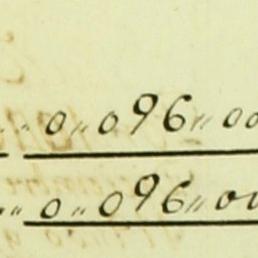 〃0〃096〃00
〃0〃096〃00